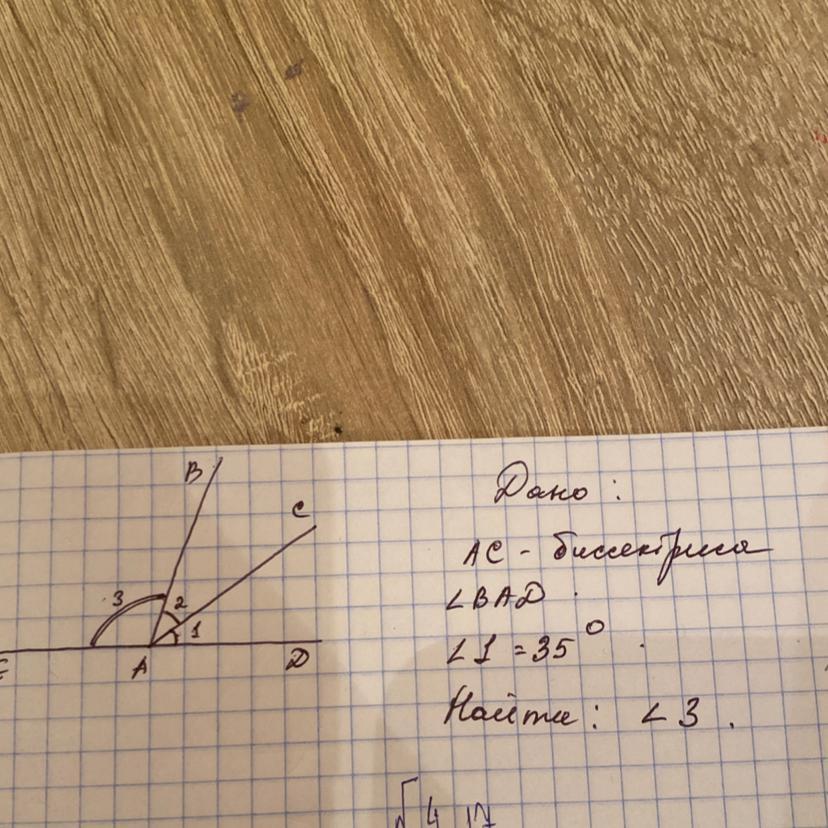 B
C
3
2
1
A
D
Дано:
AC - биссектриса
∠BAD.
∠1 = 35°.
Найти: ∠3.
√4 17